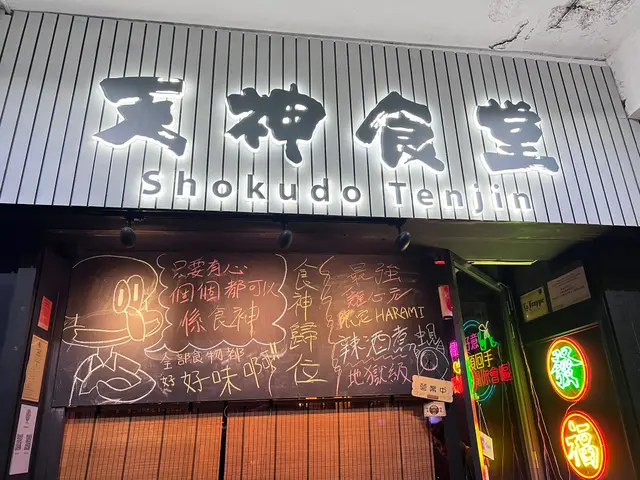 天神食堂
Shokudo Tenjin
只要有心
個個都可以
係食神
全部食物都
好好味啊!!
食神歸位
最強
雞心元
限定 HARAMI
辣酒煮蜆
地獄級
營業中
發
福